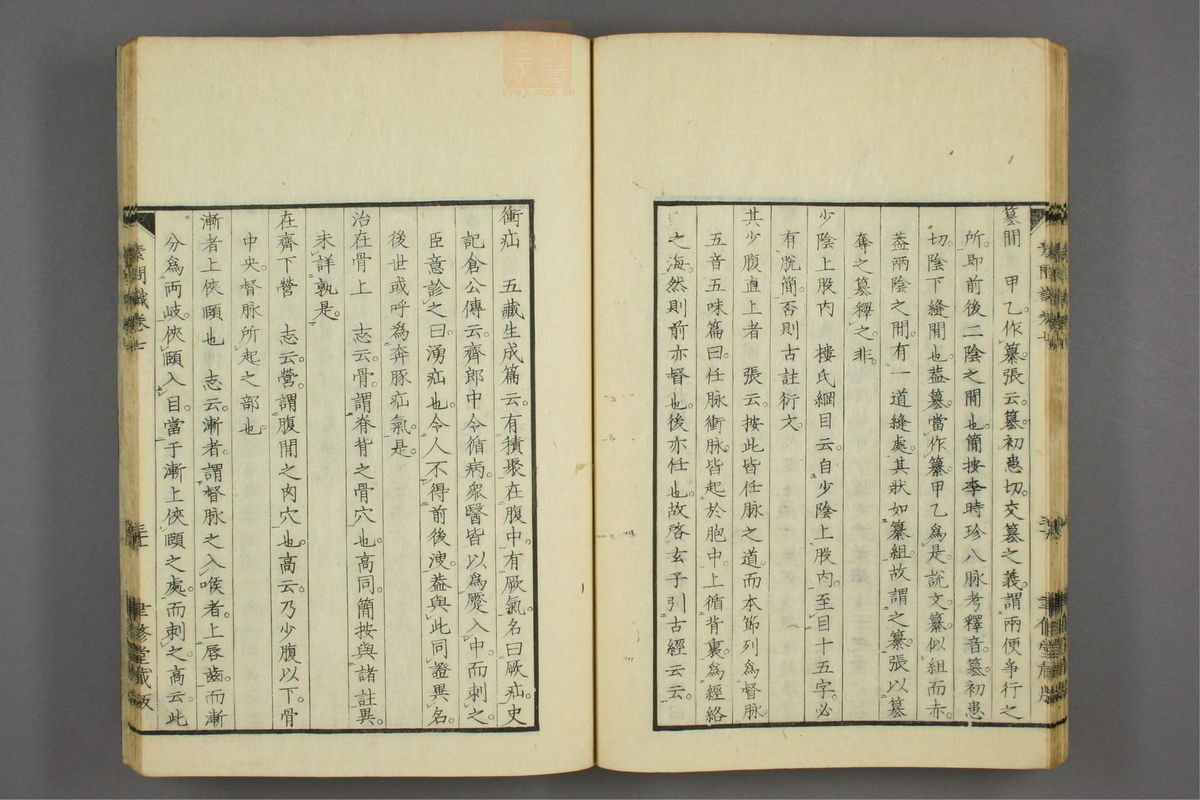 篡間　甲乙作纂。張云。篡初患切。交篡之義。謂兩便爭行之
所。即前後二陰之間也。簡按李時珍八脉考釋音。篡初患
切。陰下縫間也。葢篡當作纂。甲乙爲是。說文。纂似組而赤。
葢兩陰之間。有一道縫處。其狀如纂組。故謂之纂。張以篡
奪之篡釋之。非。
少陰上股內　樓氏綱目云。自少陰上股內。至目十五字。必
有脫簡。否則古註衍文。
其少腹直上者　張云。按此皆任脉之道。而本節列爲督脉
五音五味篇曰。任脉衝脉。皆起於胞中。上循背裏。爲經絡
之海。然則前亦督也。後亦任也。故啓玄子引古經云云。
衝疝　五藏生成篇云。有積聚在腹中。有厥氣。名曰厥疝。史
記倉公傳云。齊郎中令循病。衆醫皆以爲蹙入中。而刺之。
臣意診之曰。湧疝也。令人不得前後溲。葢與此同證異名。
後世或呼爲奔豚疝氣。是。
治在骨上　志云。骨。謂脊背之骨穴也。高同。簡按與諸註異。
未詳孰是。
在齊下營　志云。營。謂腹間之肉穴也。高云。乃少腹以下。骨
中央。督脉所起之部也。
漸者上俠頤也　志云。漸者。謂督脉之入喉者。上唇齒。而漸
分爲兩岐。俠頤入目。當于漸上俠頤之處。而刺之。高云。此
素問識卷七
聿修堂藏版